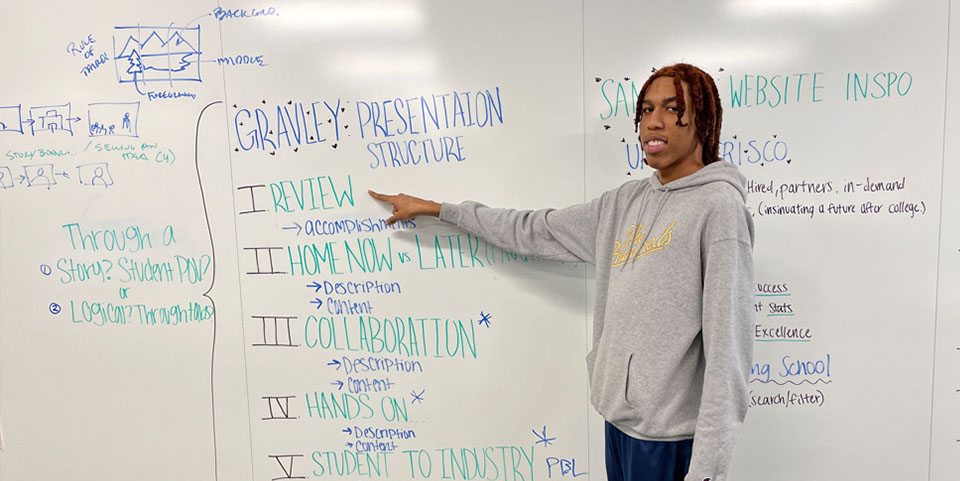 BACKGRO.
RULE
OF
MIDDLE
STORYBOARD / SELLING AN
IDEA (4)
Through a
① Story? Student POV?
or
② Logical? Through
GRAVLEY PRESENTAION
STRUCTURE
I. REVIEW
→ accomplishments
II HOME NOW vs LATER
→ Description
→ Content
III. COLLABORATION*
→ Description
→ Content
IV. HANDS ON...*
→ Description
→ Content
V STUDENT TO INDUSTRY* PBL
SAM WEBSITE INSPO
RI-SCO
Hired, partners, in-demand
(insinuating a future after college.)
Stats
Excellence
School
(search/filter)